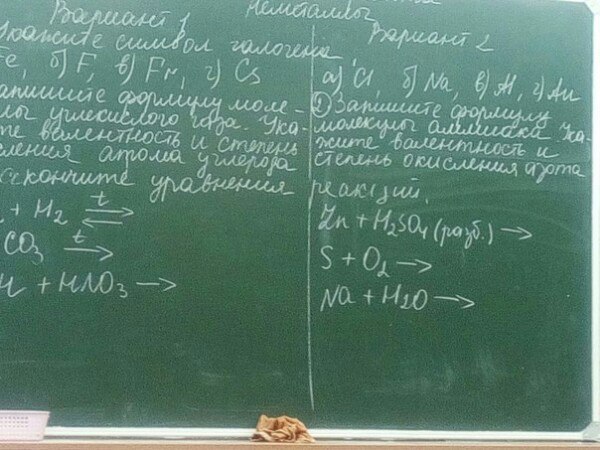 Неметаллы
Вариант 1
Укажите символ галогена
Fe, б) F, в) Fr, г) Cs
апишите формулу моле-
лы углекислого газа. Ука-
те валентность и степень
сления атома углерода
акончите уравнения
+ H2 t ⇄
CO3 t →
H + HNO3 →
Вариант 2
а) Cl, б) Na, в) Al, г) Au
2) Запишите формулу
молекулы аммиака. Ука-
жите валентность и
степень окисления азота
реакций.
Zn + H2SO4 (разб.) →
S + O2 →
Na + H2O →